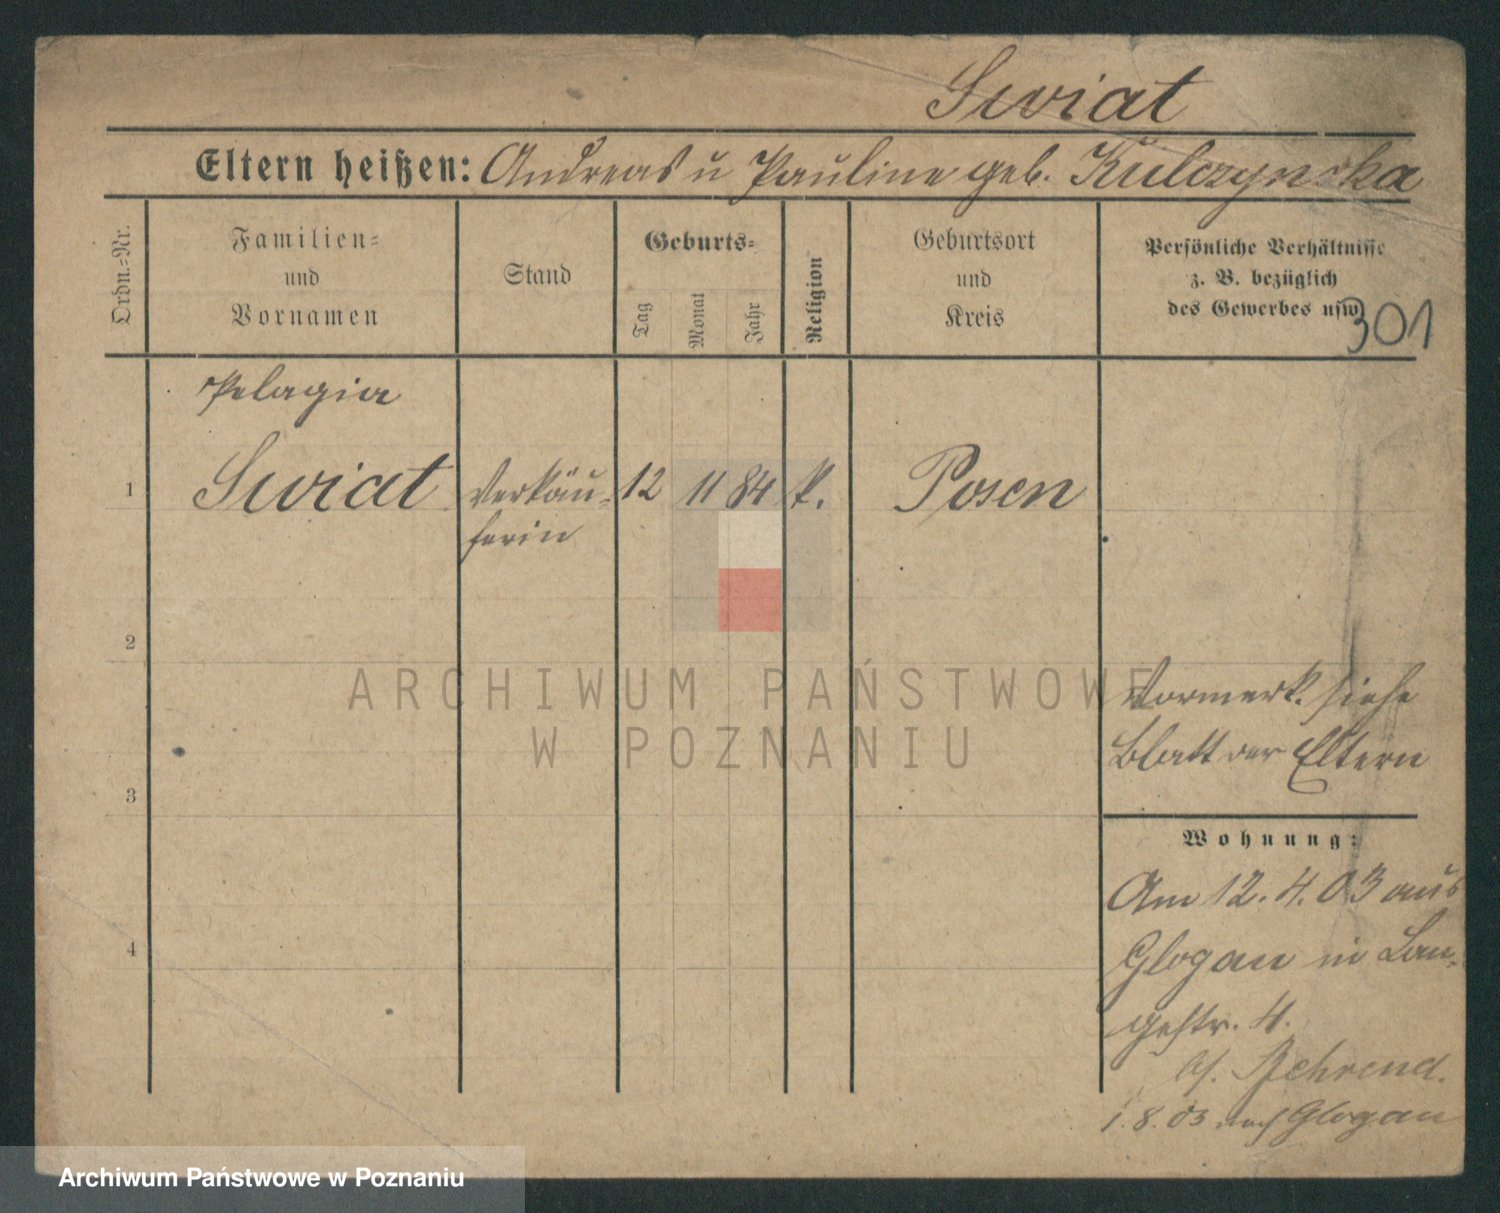 Swiat
Eltern heißen: Andreas u Pauline geb. Kulczynska
Ordn.-Nr.
Familien-
und
Vornamen
Stand
Geburts-
Tag
Monat
Jahr
Religion
Geburtsort
und
Kreis
Persönliche Verhältnisse
z. B. bezüglich
des Gewerbes usw.
301
Pelagia
1 Swiat Verkäu- 12 11 84 k. Posen
ferin
2
3
4
Vormerk. siehe
Blatt der Eltern
Wohnung:
Am 12.4.03 aus
Glogau in Lan-
gestr. 4.
b/. Behrend.
1.8.03 nach Glogau
ARCHIWUM PAŃSTWOWE
W POZNANIU
Archiwum Państwowe w Poznaniu